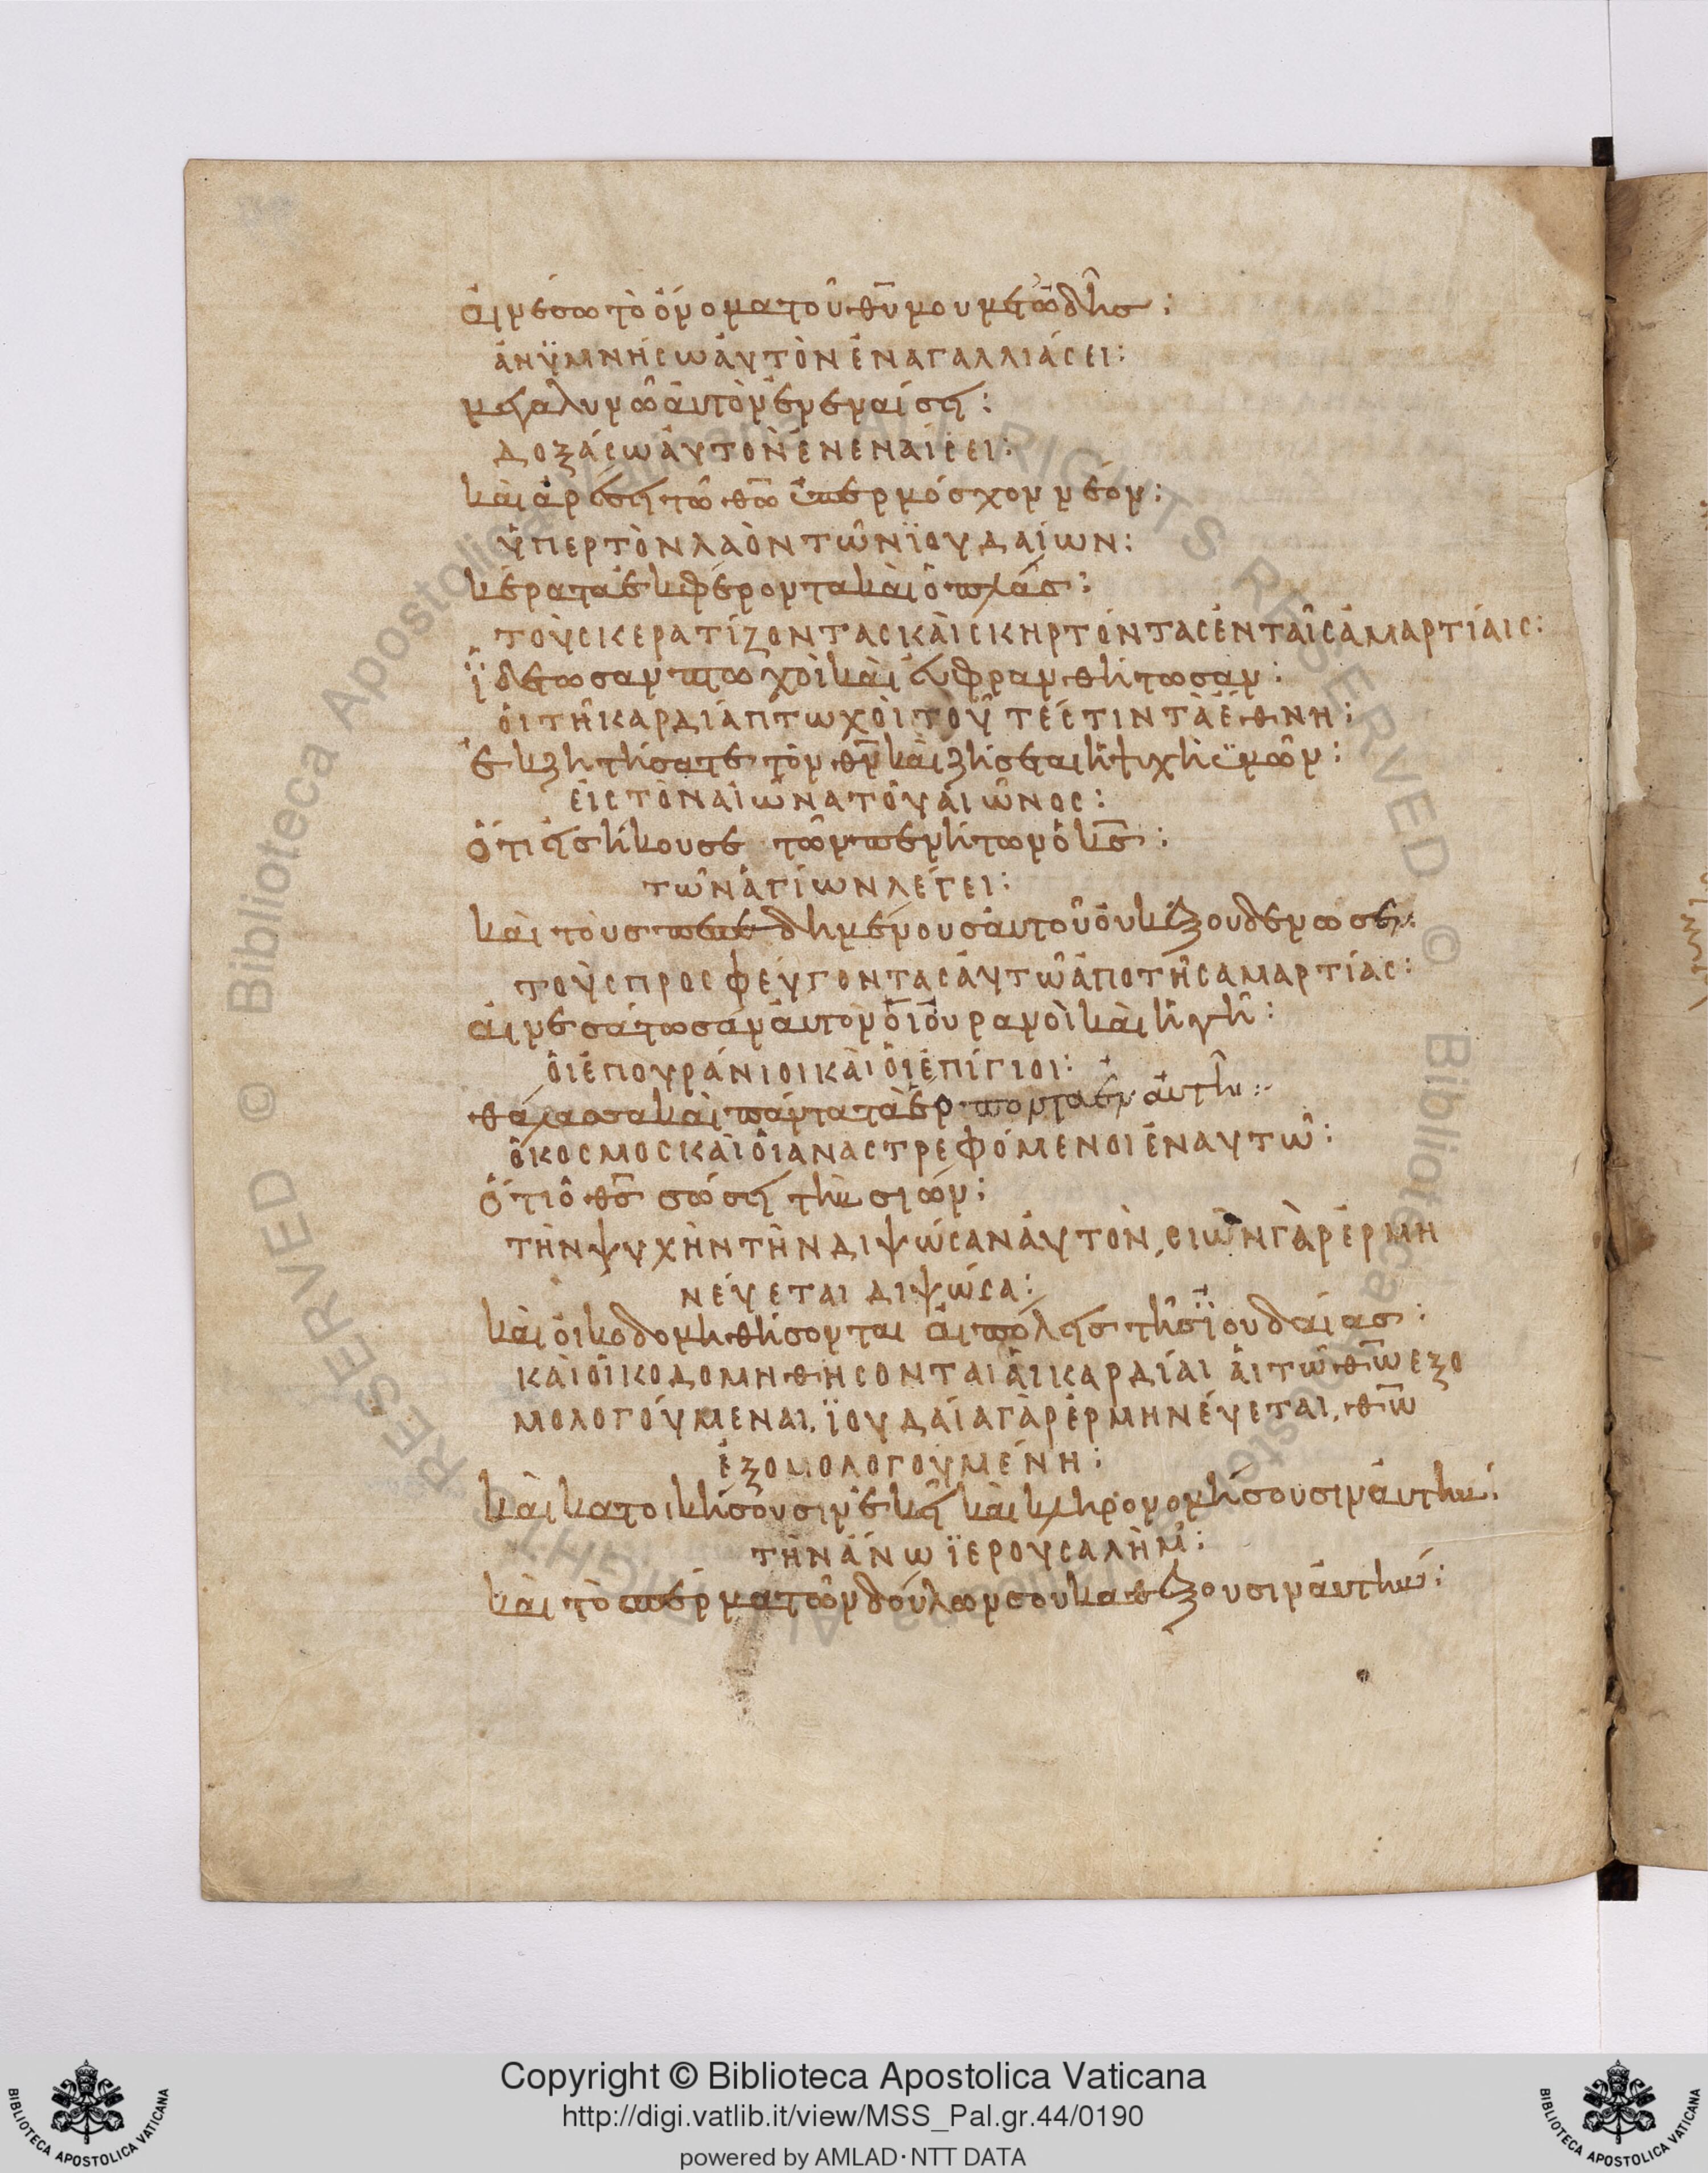 αἰνέσω τὸ ὄνομα τοῦ θῡ μου μετ ὠδῆσ :
ἀνϋμνήσω ἀυτὸν ἐν ἀγαλλιάσει :
μεγαλυνῶ ἀυτὸν ἐν ἐναίσει :
δοξάσω ἀυτὸν ἐν ἐναίσει :
καὶ ἀρέσει τῶ θῶ ὑπερ μόσχον νέον :
ὑπερ τὸν λαὸν τῶν ϊουδαίων :
κέρατα ἐκφέροντα καὶ ὁπλάσ :
τοὺσ ικερατίζοντας καὶ σκηρτόντασ ἐν ταῖσ ἁμαρτίαις :
ϊδέτωσαν πτωχοὶ καὶ ἐυφρανθήτωσαν :
ὁι τῆ καρδιά πτωχὸι τοῦτ ἐστιν τὰ ἔθνη :
ἐκζητήσατε τὸν θν̄ καὶ ζήσεται ἡ ψυχὴ ϋμῶν :
ἐις τὸν αἰῶνα τοῦ αἰῶνος :
ὅτι εισήκουσε τῶν πενήτων ὁ κσ̄ :
τῶν ἁγίων λέγει :
καὶ τοὺσ πεπεδημένουσ ἀυτοῦ ὀυκ ἐξουδένωσεν :
τοὺς προσφεύγοντας ἀυτῶ ἀπο τῆς αμαρτίας :
ἀινεσάτωσαν ἀυτον ὁι ὀυρανοὶ καὶ ἡ γῆ :
ὁι ἐπουράνιοι καὶ ὁι ἐπίγιοι :
θάλασσα καὶ πάντα τὰ ἕρποντα ἐν ἀυτῆ :
ὁ κοσμος καὶ ὁι αναστρεφόμενοι ἐν αυτῶ :
ὅτι ὁ θσ̄ σώσει τὴν σιών :
τὴν ψυχὴν τὴν διψώσαν ἀυτὸν, σιὼν γὰρ ἑρμη
νέυεται διψώσα :
καὶ ὀικοδομηθήσονται ἁι πόλεισ τῆσ ϊουδαίασ :
καὶ ὀικοδομηθησονται ἁι καρδίαι ἁι τῶ θω̄ εξο
μολογούμεναι. ϊουδαία γὰρ ἑρμηνέυεται, θω̄
ἐξομολογουμένη :
καὶ κατοικήσουσιν ἐκεῖ καὶ κληρονομήσουσιν ἀυτήν :
τὴν ἄνω ϊερουσαλὴμ :
καὶ τὸ σπέρμα τῶν δούλων σου καθέξουσιν ἀυτήν :
Copyright © Biblioteca Apostolica Vaticana
http://digi.vatlib.it/view/MSS_Pal.gr.44/0190
powered by AMLAD·NTT DATA
BIBLIOTECA APOSTOLICA VATICANA
BIBLIOTECA APOSTOLICA VATICANA
© Biblioteca Apostolica Vaticana ALL RIGHTS RESERVED
© Biblioteca Apostolica Vaticana ALL RIGHTS RESERVED